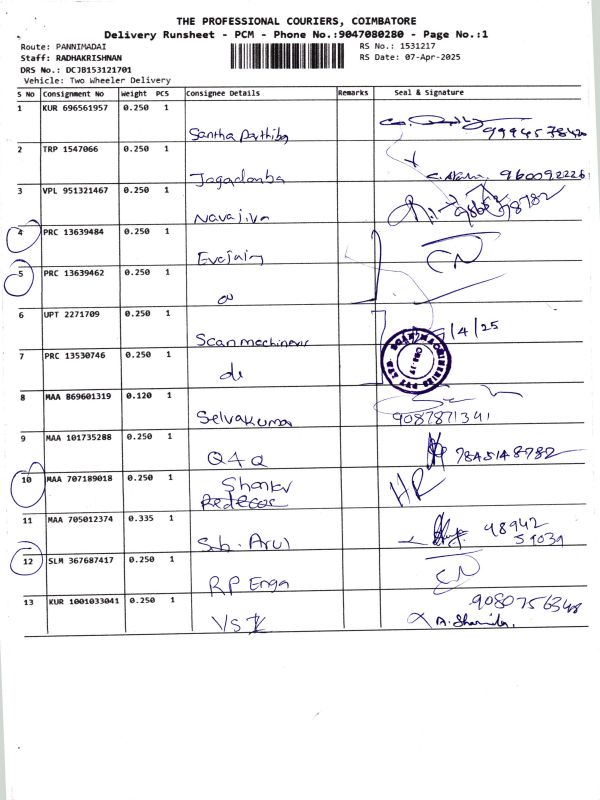 THE PROFESSIONAL COURIERS, COIMBATORE
Delivery Runsheet - PCM - Phone No.:9047080280 - Page No.:1
Route: PANNIMADAI
RS No.: 1531217
Staff: RADHAKRISHNAN
RS Date: 07-Apr-2025
DRS No.: DCJB153121701
Vehicle: Two Wheeler Delivery
S No Consignment No Weight PCS Consignee Details Remarks Seal & Signature
1 KUR 696561957 0.250 1
Santha Parthiba 9994578420
2 TRP 1547066 0.250 1
Jagadamba 960092226
3 VPL 951321467 0.250 1
Navajiva
4 PRC 13639484 0.250 1
Evajain CN
5 PRC 13639462 0.250 1
6 UPT 2271709 0.250 1
Scan machineri /4/25
7 PRC 13530746 0.250 1
do
8 MAA 869601319 0.120 1
Selvakuma 9087871341
9 MAA 101735288 0.250 1
Q4Q 7845148782
10 MAA 707189018 0.250 1
Shankar HR
11 MAA 705012374 0.335 1
Sb. Arul 98942
59039
12 SLM 367687417 0.250 1
RP Enga CN
13 KUR 1001033041 0.250 1
9080756348
VSK A. Sharmila.